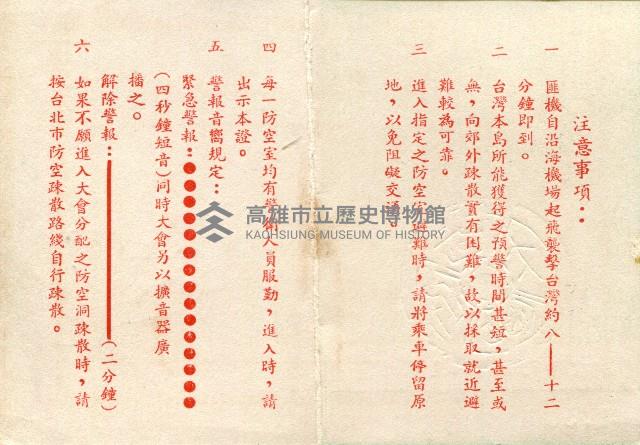 注意事項：
一　匪機自沿海機場起飛襲擊台灣約八——十二
分鐘即到。
二　台灣本島所能獲得之預警時間甚短，甚至或
無，向郊外疎散實有困難，故以採取就近避
難較為可靠。
三　進入指定之防空室避難時，請將乘車停留原
地，以免阻礙交通。
四　每一防空室均有警衛人員服勤，進入時，請
出示本證。
五　警報音嚮規定：
緊急警報：●●●●●●●●●●●●●●●
（四秒鐘短音）同時大會另以擴音器廣
播之。
解除警報：————————（二分鐘）
六　如果不願進入大會分配之防空洞疎散時，請
按台北市防空疎散路綫自行疎散。
高雄市立歷史博物館
KAOHSIUNG MUSEUM OF HISTORY